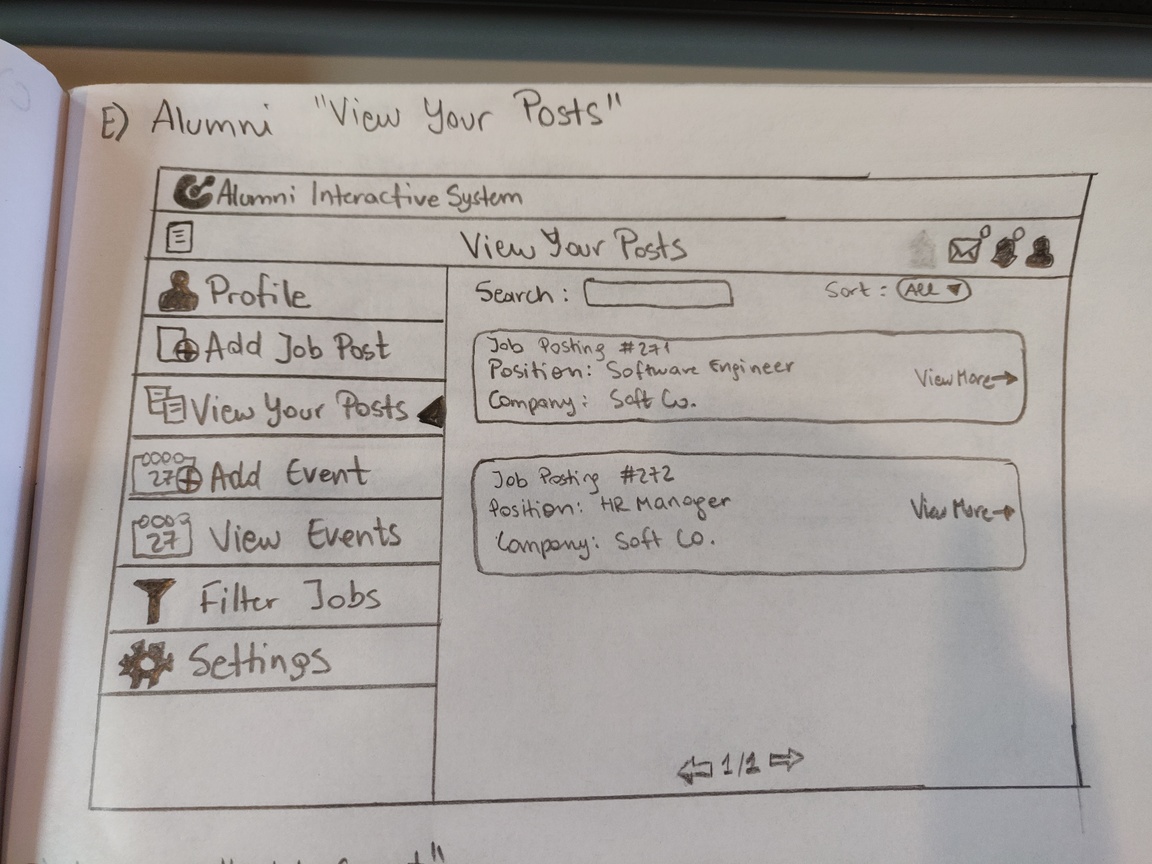 E) Alumni "View Your Posts"
Alumni Interactive System
View Your Posts
Profile
Add Job Post
View Your Posts
27 Add Event
27 View Events
Filter Jobs
Settings
Search :
Sort : All
Job Posting #271
Position: Software Engineer
Company: Soft Co.
View More
Job Posting #272
Position: HR Manager
Company: Soft Co.
View More
1/1